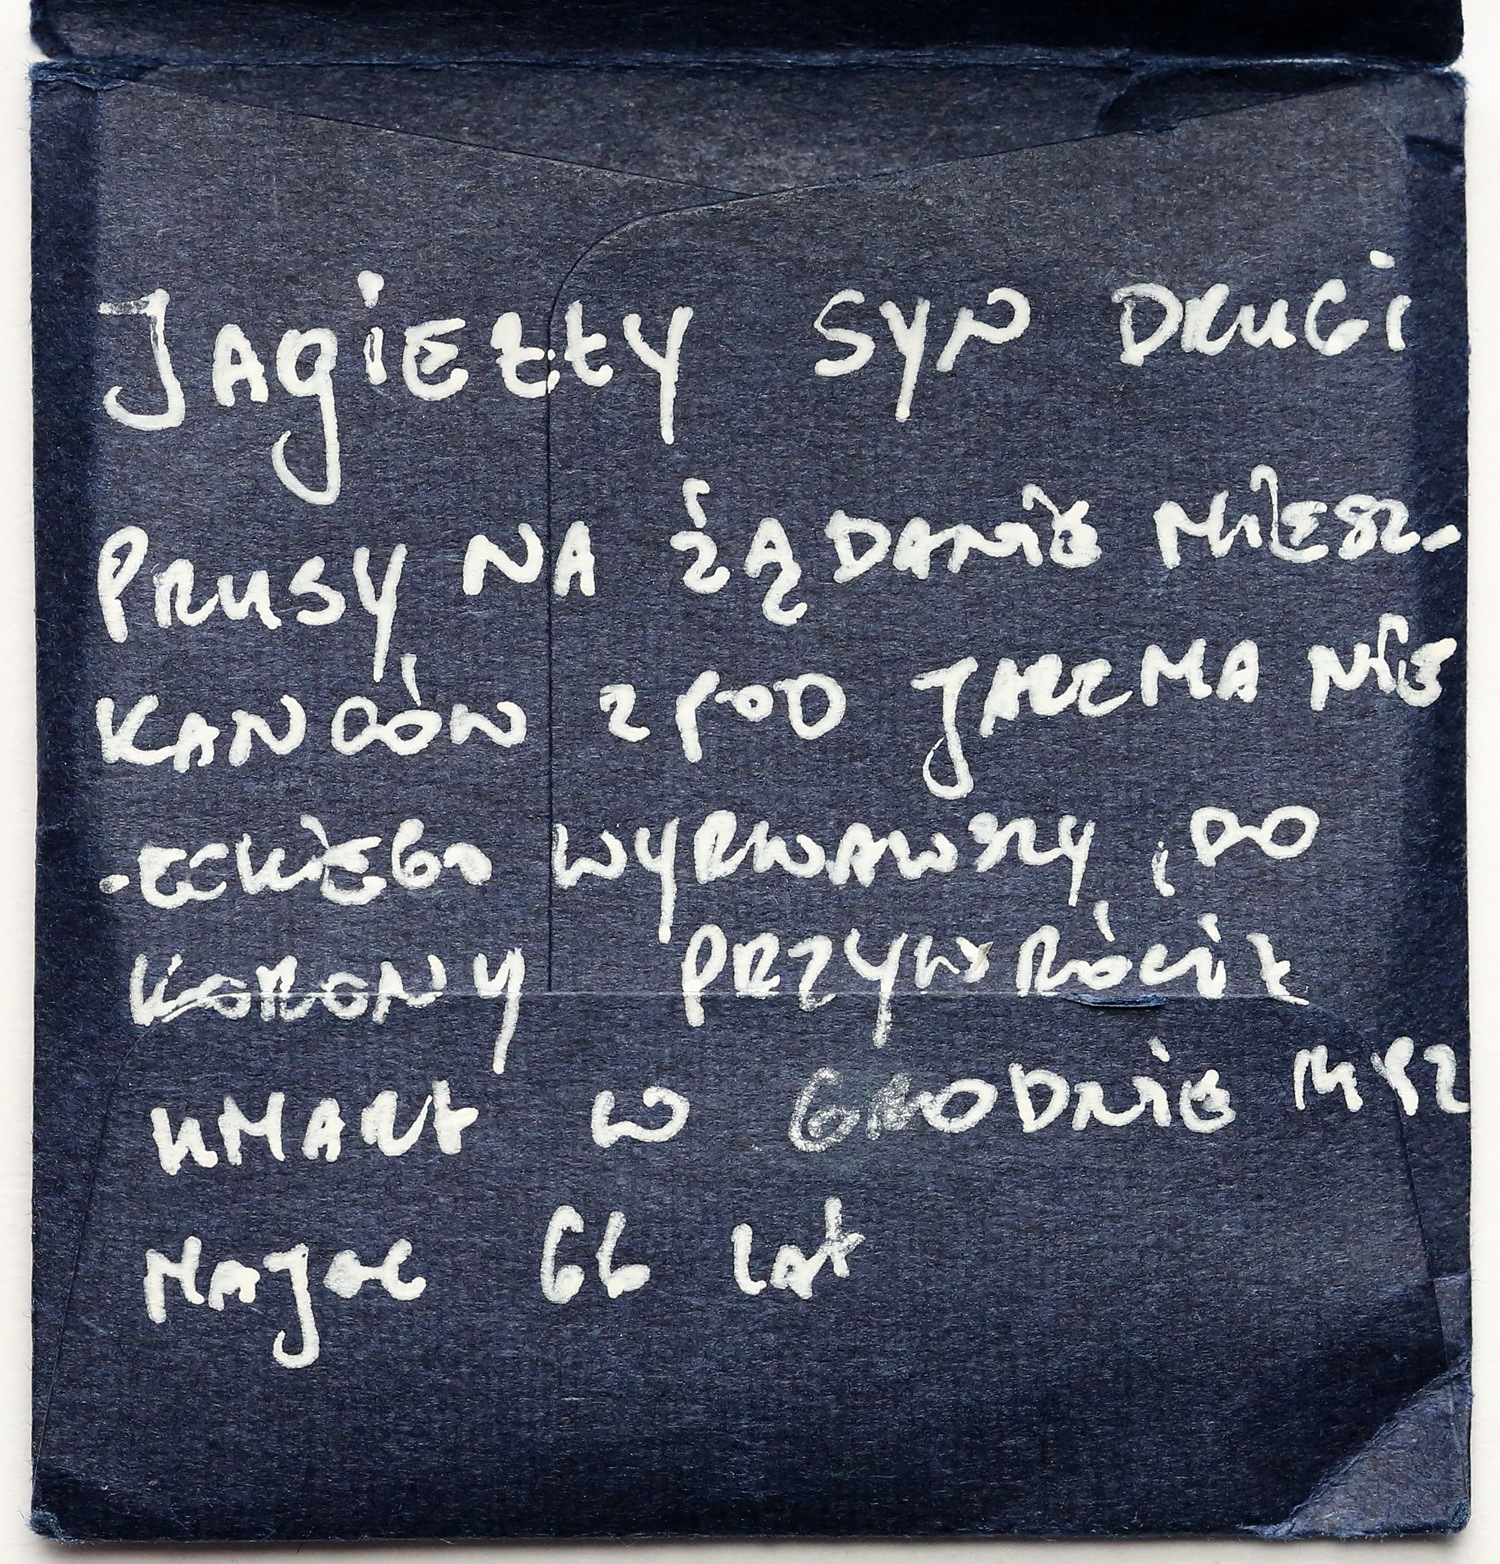 JAgiEŁŁY SYN DRUGi
PRUSY NA ŻĄDANiE MiESZ-
KANCÓW Z POD JARZMA NiE
-CCKiEGO WYRWAWSZY i DO
KORONY PRZYWRÓCiŁ
UMARŁ W GRODNiE 1492
MAJAC 66 lat